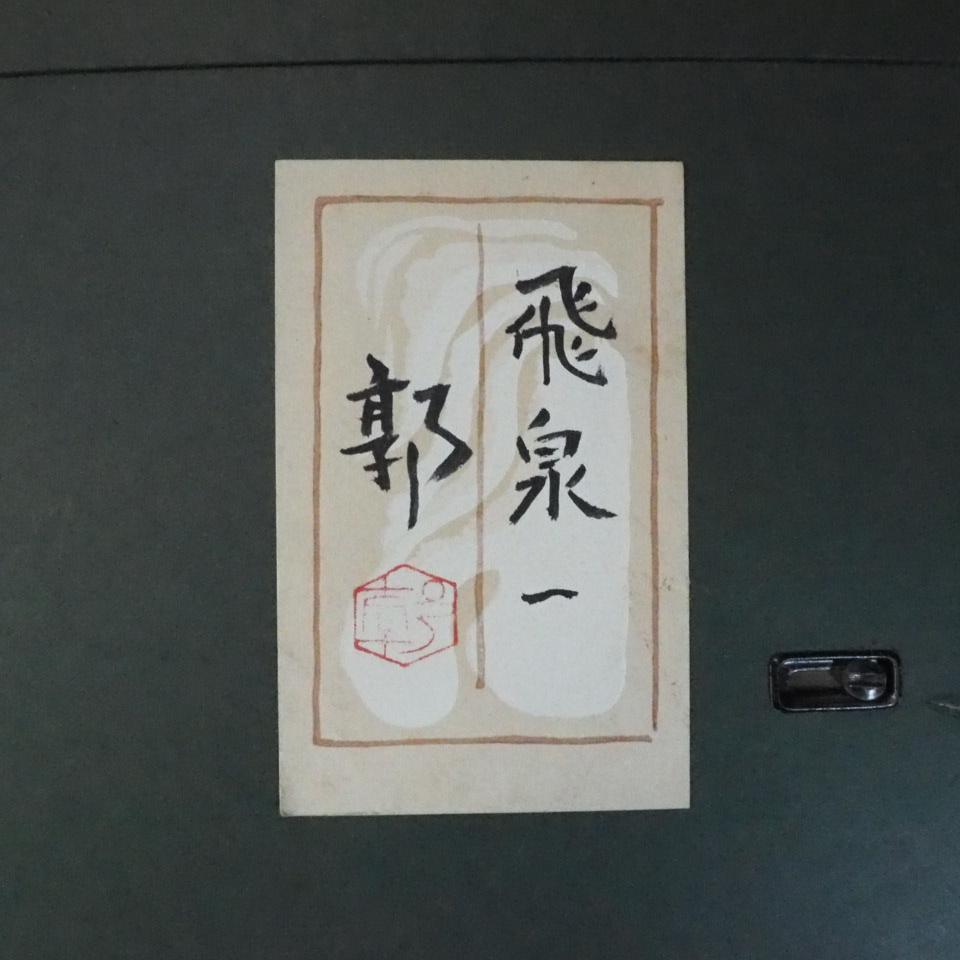 飛泉一
郭